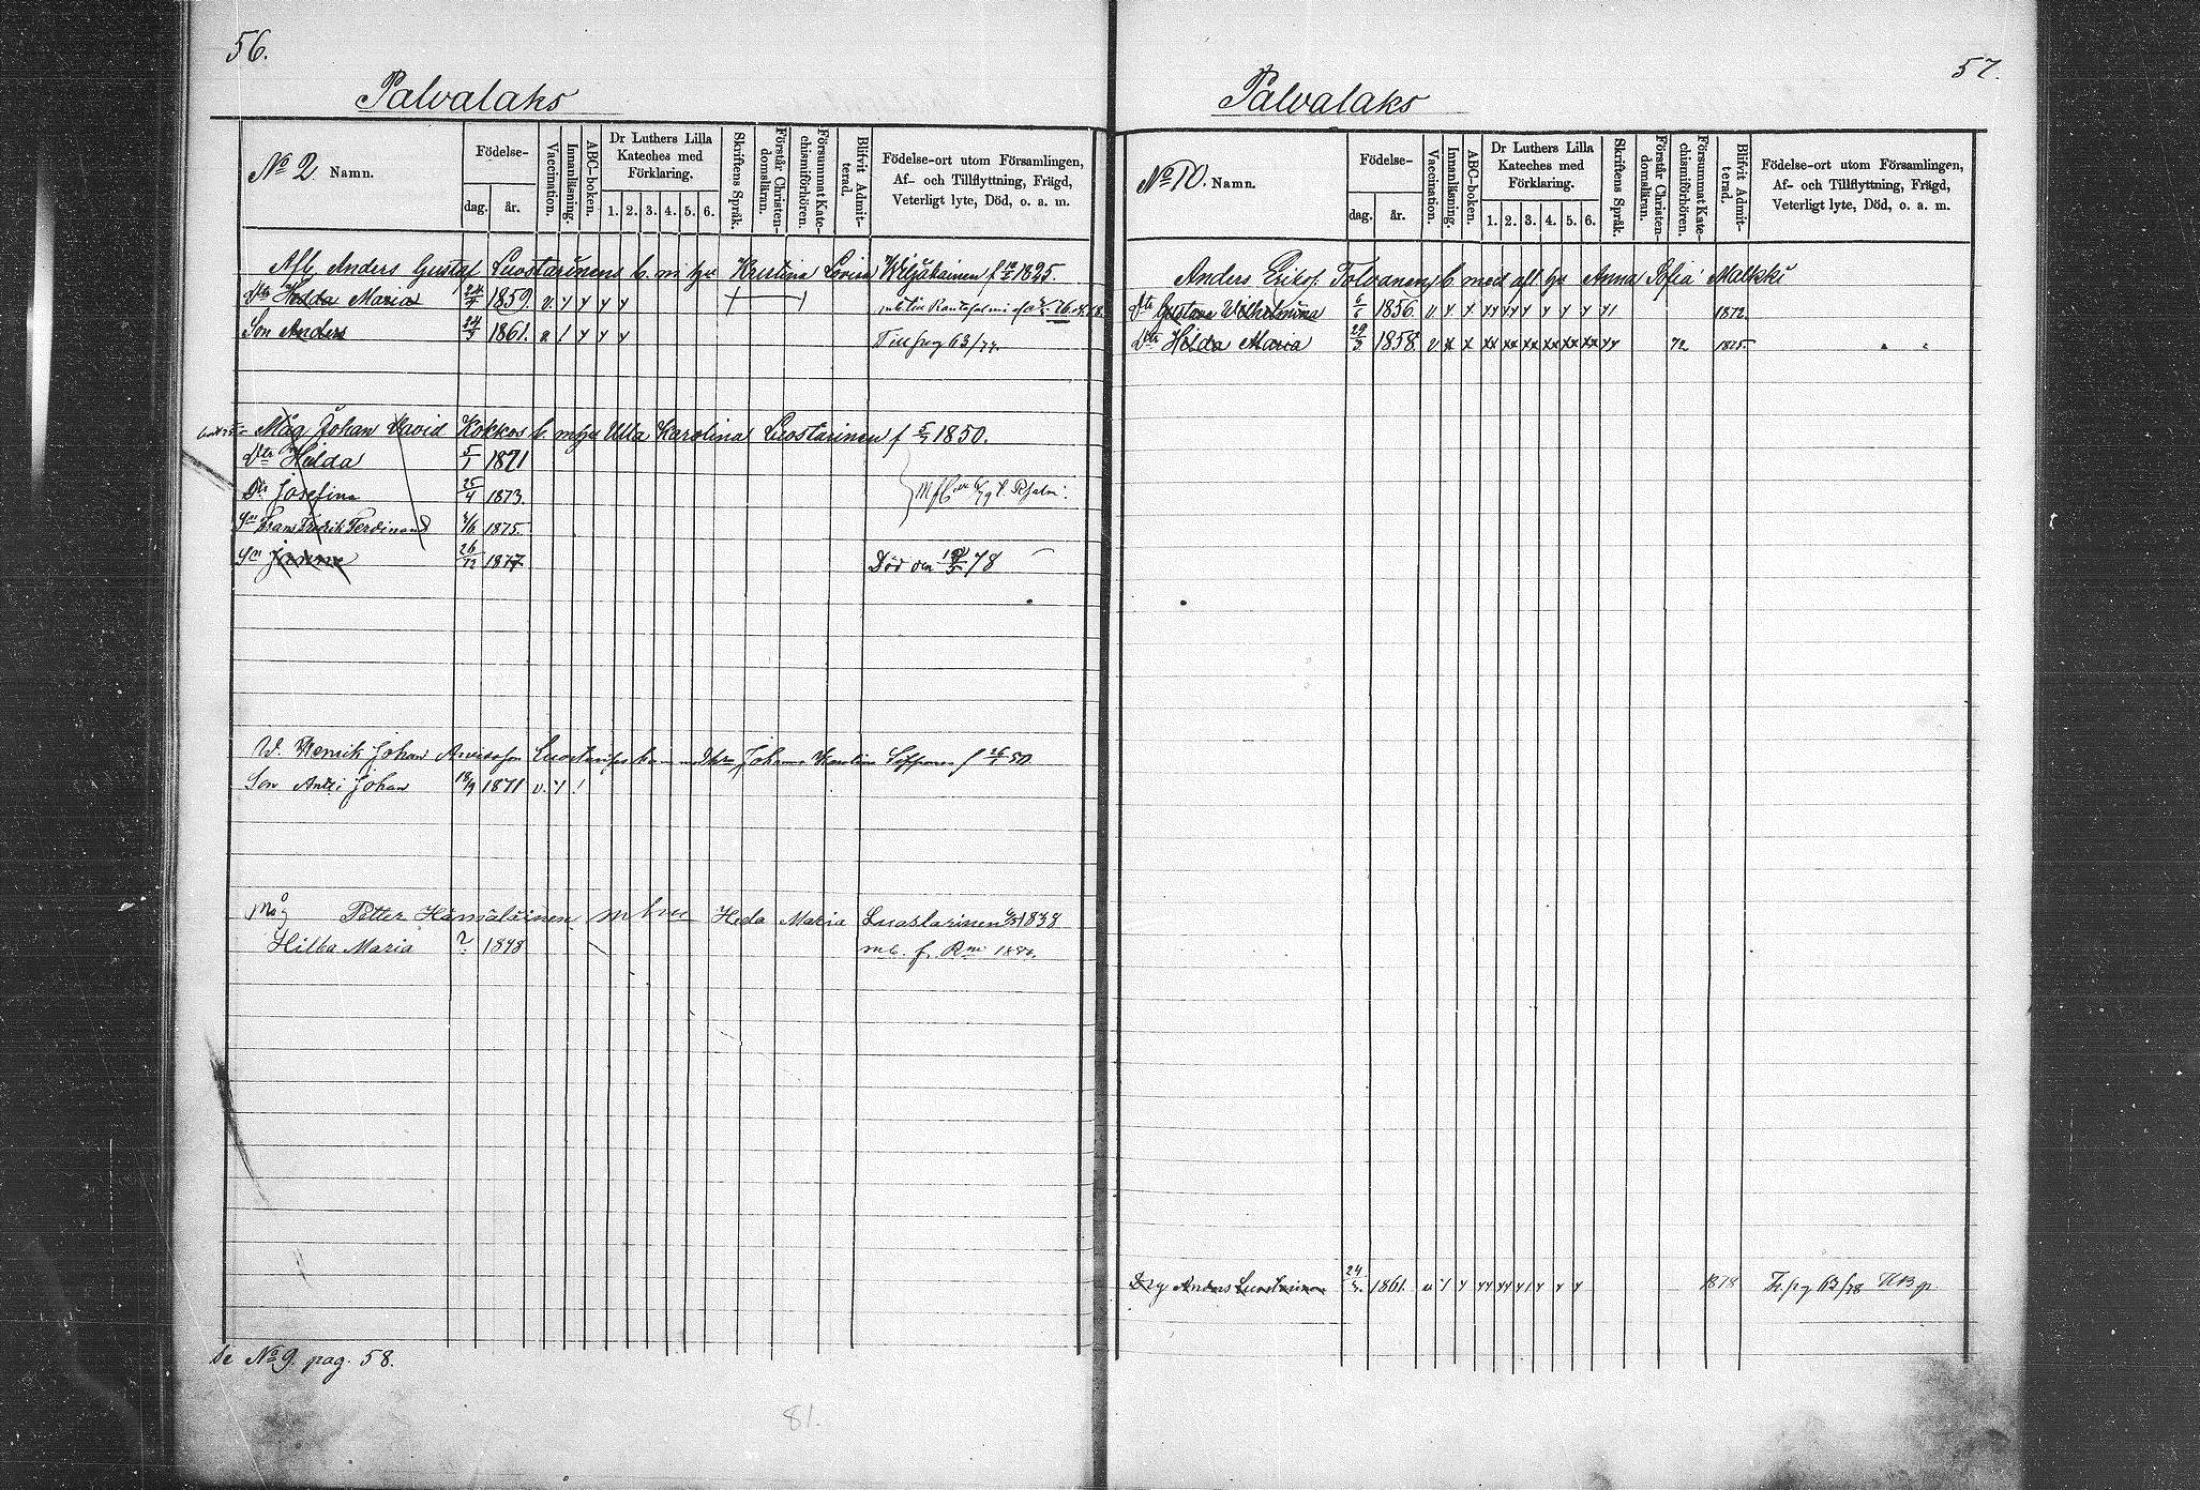 56.
Palvalaks
No 2. Namn.
Födelse-
dag.
år.
Vaccination.
Innanläsning.
ABC-boken.
Dr Luthers Lilla
Kateches med
Förklaring.
1. 2. 3. 4. 5. 6.
Skriftens Språk.
Förstår Christen-
domsläran.
Försummat Kate-
chismiförhören.
Blifvit Admit-
terad.
Födelse-ort utom Församlingen,
Af- och Tillflyttning, Frägd,
Veterligt lyte, Död, o. a. m.
Afl. Anders Gustaf Luostarinens b. m. hu Kristina Lovisa Wiljakainen f 1825.
Dtr Helda Maria 24/4 1859. v. y y y y
Son Anders 24/3 1861. v / y y y Till pag 63/77.
Måg Johan David Kokkos b. m hu Ulla Karolina Luostarinen f 5/7 1850.
Dtr Helda 5/1 1871
Dtr Josefina 25/4 1873.
Sn Frans Fredrik Ferdinand 4/6 1875.
Sn 26/12 1877 Död den /78
W. Henrik Johan Johanna Karolina f 50
Son Antti Johan 18/9 1871 v. y !
Måg Petter Hämäläinen m hu Heda Maria Luostarinen 1838
Hilba Maria ? 1848 mb. f. 1880.
Se No 9. pag. 58.
81.
57.
Palvalaks
No 10. Namn.
Födelse-
dag.
år.
Vaccination.
Innanläsning.
ABC-boken.
Dr Luthers Lilla
Kateches med
Förklaring.
1. 2. 3. 4. 5. 6.
Skriftens Språk.
Förstår Christen-
domsläran.
Försummat Kate-
chismiförhören.
Blifvit Admit-
terad.
Födelse-ort utom Församlingen,
Af- och Tillflyttning, Frägd,
Veterligt lyte, Död, o. a. m.
Anders Eriksf. Tolvanens b med afl hu Anna Sofia Malkki
Dtr Gustava Wilhelmina 1856. v y y yy yy y y y y y1 1872.
Dtr Hilda Maria 29/3 1858. v x x xx xx xx xx xx xx yy 72 1875.
Drg Anders Luostarinen 24/3. 1861. v / y yy yy y y y y 1878 Tr. pg 63/78